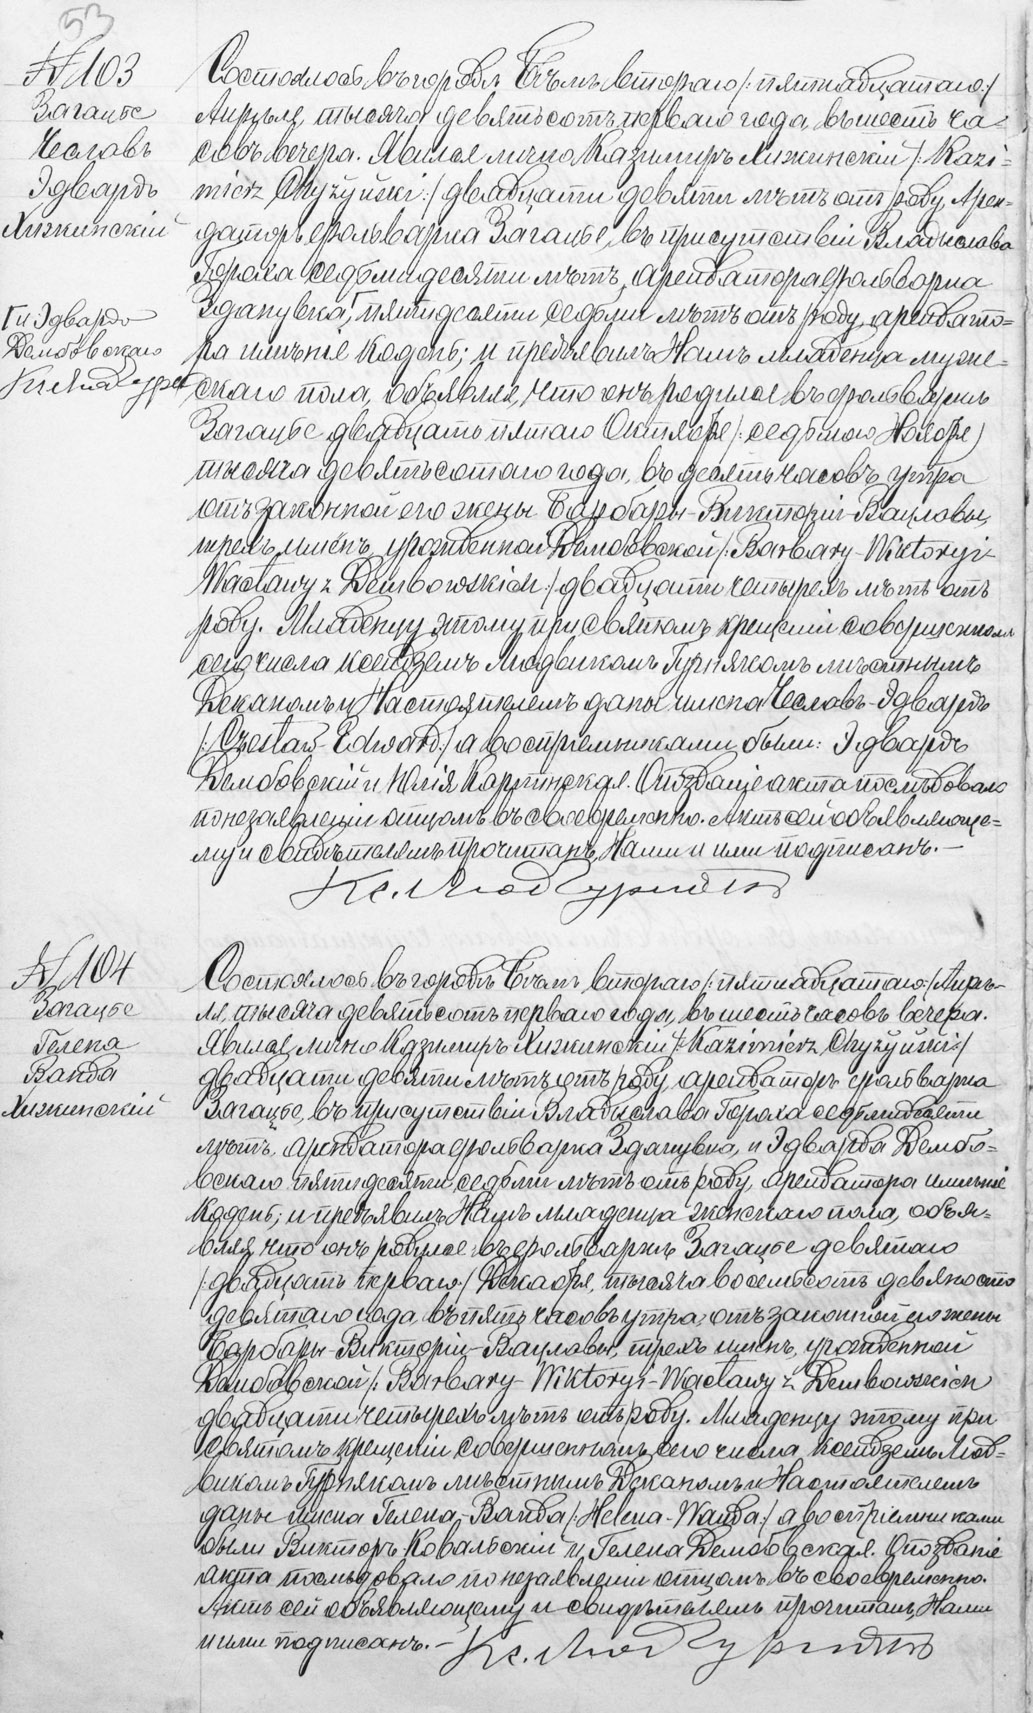 53
№ 103
Загацье
Чеславъ
Эдвардъ
Хижинскій
Состоялось въ городѣ Бѣлѣ втораго /:пятнадцатаго:/
Апрѣля, тысяча девятьсотъ перваго года, въ шесть ча-
совъ вечера. Явился лично Казимиръ Хижинскій /:Kazi-
mierz Chyżyński:/ двадцати девяти лѣтъ отъ роду, Арен-
даторъ фольварка Загацье, въ присутствіи Владыслава
Гороха семидесяти лѣтъ, арендатора фольварка
Зданувка, Г пятидесяти седьми лѣтъ отъ роду, арендато-
ра имѣніе Кодень; и предъявилъ Намъ младенца муже-
скаго пола, объявляя, что онъ родился въ фольваркѣ
Загацье двадцать пятаго Октября /:седьмаго Ноября)
тысяча девятьсотаго года, въ десять часовъ утра
отъ законной его жены Барбары-Викторіи-Вацлавы,
трехъ имёнъ, урожденной Дембовской /:Barbary-Wiktoryi-
Wacławy z Dembowskich:/ двадцати четырехъ лѣтъ отъ
роду. Младенцу этому при святомъ крещеніи совершенномъ
сего числа ксендземъ Людвикомъ Гурнякомъ мѣстнымъ
Деканомъ и Настоятелемъ даны имена Чеславъ-Эдвардъ
/:Czesław-Edward:/ а воспріемниками были: Эдвардъ
Дембовскій и Юлія Карпинская. Опозданіе акта послѣдовало
по незаявленіи отцомъ въ своевременно. Актъ сей объявляюще-
му и свидѣтелямъ прочитанъ, Нами и ими подписанъ.—
Г и Эдварда
Дембовскаго
№ 104
Загацье
Гелена
Ванда
Хижинскій
Состоялось въ городѣ Бѣлѣ втораго /:пятнадцатаго:/ Апрѣ-
ля, тысяча девятьсотъ перваго года, въ шесть часовъ вечера.
Явился лично Казимиръ Хижинскій /:Kazimierz Chyżyński:/
двадцати девяти лѣтъ отъ роду, арендаторъ фольварка
Загацье, въ присутствіи Владыслава Гороха седьмидесяти
лѣтъ, арендатора фольварка Зданувка, и Эдварда Дембо-
вскаго пятидесяти седьми лѣтъ отъ роду, арендатора имѣніе
Кодень; и предъявилъ Намъ младенца женскаго пола, объя-
вляя, что онъ родился въ фольваркѣ Загацье девятаго
/:двадцать перваго:/ Декабря, тысяча восемьсотъ девяносто
девятаго года, въ пять часовъ утра, отъ законной его жены
Барбары-Викторіи-Вацлавы, трехъ именъ, урожденной
Дембовской /:Barbary-Wiktoryi-Wacławy z Dembowskich
двадцати четырехъ лѣтъ отъ роду. Младенцу этому при
святомъ крещеніи, совершенномъ сего числа, ксендземъ Люд-
викомъ Гурнякомъ мѣстнымъ Деканомъ и Настоятелемъ
даны имена Гелена-Ванда /:Helena-Wanda:/ а воспріемниками
были Викторъ Ковальскій и Гелена Дембовская. Опозданіе
акта послѣдовало по незаявленіи отцомъ въ своевременно.
Актъ сей объявляющему и свидѣтелямъ прочитанъ, Нами
и ими подписанъ.—